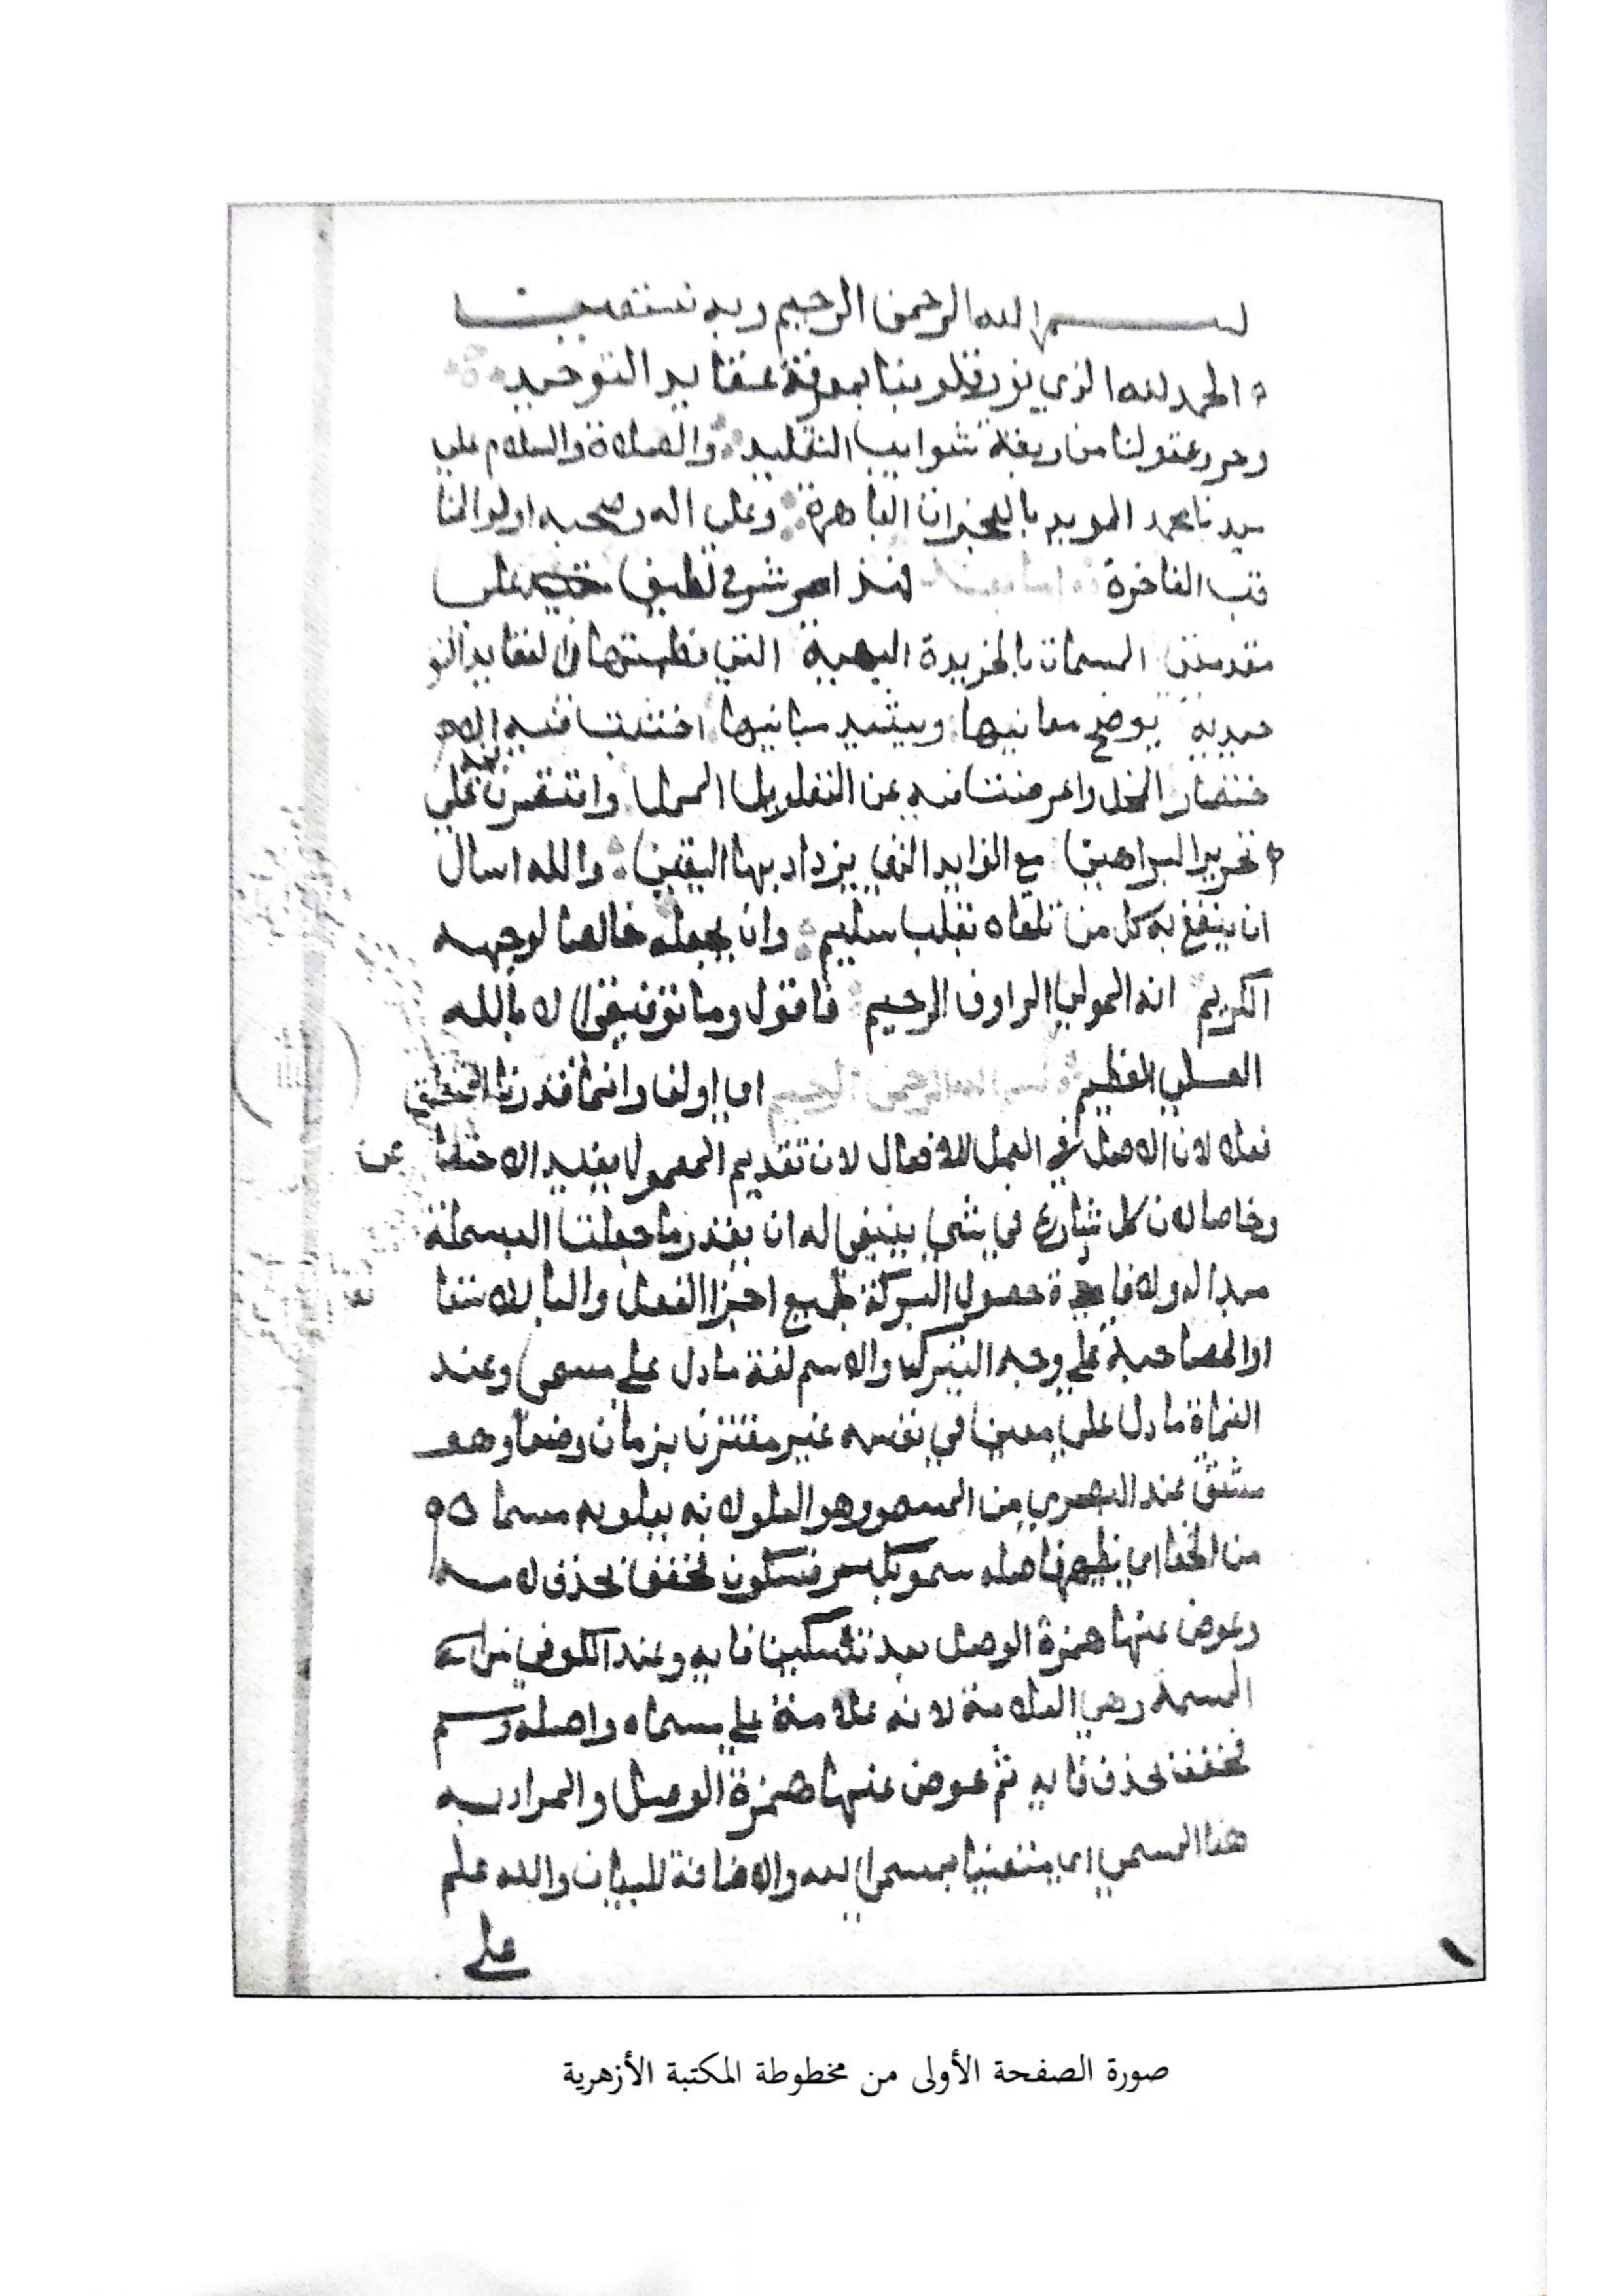 بسم الله الرحمن الرحيم وبه نستعين
الحمد لله الذي نور قلوبنا بمعرفة عقايد التوحيد
وحرر عقولنا من ربقة شوايب التقليد والصلاة والسلام علي
سيدنا محمد المويد بالمعجزات الباهرة وعلي اله وصحبه اولو المنا
قب الفاخرة فهذا شرح لطيف علي
مقدمتي المسمات بالخريدة البهية التي نظمتها في العقايد التو
حيديه يوضح معانيها ويشيد مبانيها اجتنبت فيه الا
ختصار المخل واعرضت فيه عن التطويل الممل واقتصرت علي
تحرير البراهين مع الفوايد التي يزداد بها اليقين والله اسال
ان ينفع به كل من تلقاه بقلب سليم وان يجعله خالصا لوجهه
الكريم انه المولي الراوف الرحيم فاقول وما توفيقي الا بالله
العلي العظيم بسم الله الرحمن الرحيم اي اولف وانما قدرنا المتعلق
فعلا لان الاصل في العمل للافعال لان تقديم المعمول يفيد الاختصا
وخاصا لان كل شارع في شي ينبغي له ان يقدر ما جعلت البسملة
مبدا له ولافادة حصول البركة لجميع اجزا الفعل والبا للاستعا
او المصاحبة علي وجه التبرك والاسم لغة ما دل علي مسمي وعند
النحاة ما دل علي معني في نفسه غير مقترن بزمان وضعا وهو
مشتق عند البصري من السمو وهو العلو لانه يعلو به مسماه
من الخفا اي يظهر فاصله سمو بكسر فسكون فخفف بحذف لامه
وعوض عنها همزة الوصل بعد تسكين فايه وعند الكوفي من
السمة وهي العلامة لانه علامة علي مسماه واصله وسم
فخفف بحذف فايه ثم عوض عنها همزة الوصل والمراد به
هنا المسمي اي مستعينا بمسمي الله والاضافة للبيان والله علم
علي
صورة الصفحة الأولى من مخطوطة المكتبة الأزهرية